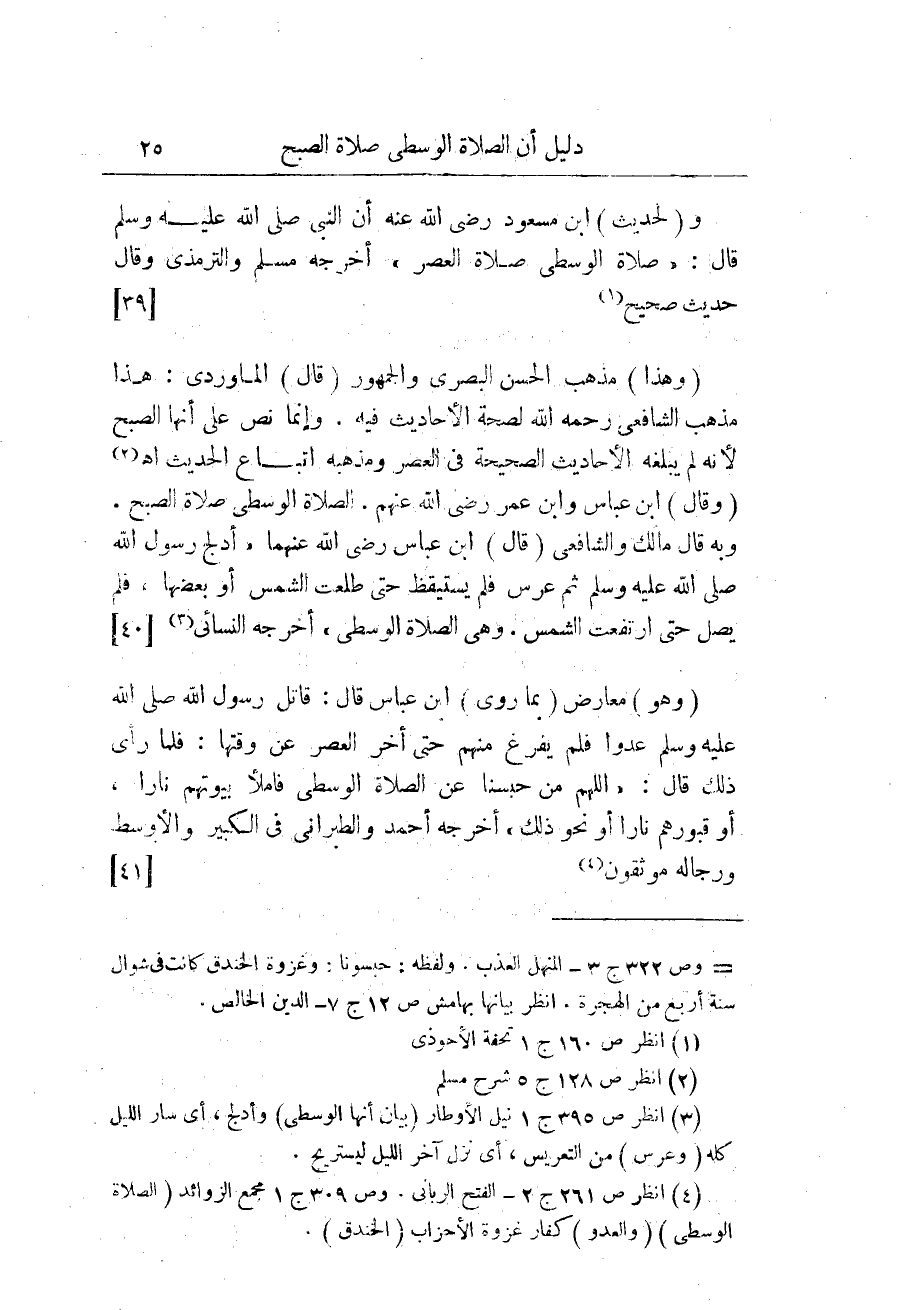 دليل أن الصلاة الوسطى صلاة الصبح ٢٥
و ( لحديث ) ابن مسعود رضى الله عنه أن النبى صلى الله عليه وسلم
قال : « صلاة الوسطى صلاة العصر » أخرجه مسلم والترمذى وقال
حديث صحيح(١) [٣٩]
( وهذا ) مذهب الحسن البصرى والجمهور ( قال ) الماوردى : هذا
مذهب الشافعى رحمه الله لصحة الأحاديث فيه . وإنما نص على أنها الصبح
لأنه لم يبلغه الأحاديث الصحيحة فى العصر ومذهبه اتباع الحديث اه(٢)
( وقال ) ابن عباس وابن عمر رضى الله عنهم . الصلاة الوسطى صلاة الصبح .
وبه قال مالك والشافعى ( قال ) ابن عباس رضى الله عنهما « أدلج رسول الله
صلى الله عليه وسلم ثم عرس فلم يستيقظ حتى طلعت الشمس أو بعضها ، فلم
يصل حتى ارتفعت الشمس . وهى الصلاة الوسطى » أخرجه النسائى(٣) [٤٠]
( وهو ) معارض ( بما روى ) ابن عباس قال : قاتل رسول الله صلى الله
عليه وسلم عدوا فلم يفرغ منهم حتى أخر العصر عن وقتها : فلما رأى
ذلك قال : « اللهم من حبسنا عن الصلاة الوسطى فاملأ بيوتهم نارا ،
أو قبورهم نارا أو نحو ذلك » أخرجه أحمد والطبرانى فى الكبير والأوسط
ورجاله موثقون(٤) [٤١]
= وص ٣٢٢ ج ٣ - المنهل العذب . ولفظه : حبسونا : وغزوة الخندق كانت فى شوال
سنة أربع من الهجرة . انظر بيانها بهامش ص ١٢ ج ٧ - الدين الخالص .
(١) انظر ص ١٦٠ ج ١ تحفة الأحوذى
(٢) انظر ص ١٢٨ ج ٥ شرح مسلم
(٣) انظر ص ٣٩٥ ج ١ نيل الأوطار (بيان أنها الوسطى) وأدلج ، أى سار الليل
كله ( وعرس ) من التعريس ، أى نزل آخر الليل ليستريح .
(٤) انظر ص ٢٦١ ج ٢ - الفتح الربانى . وص ٣٠٩ ج ١ مجمع الزوائد ( الصلاة
الوسطى ) ( والعدو ) كفار غزوة الأحزاب ( الخندق ) .